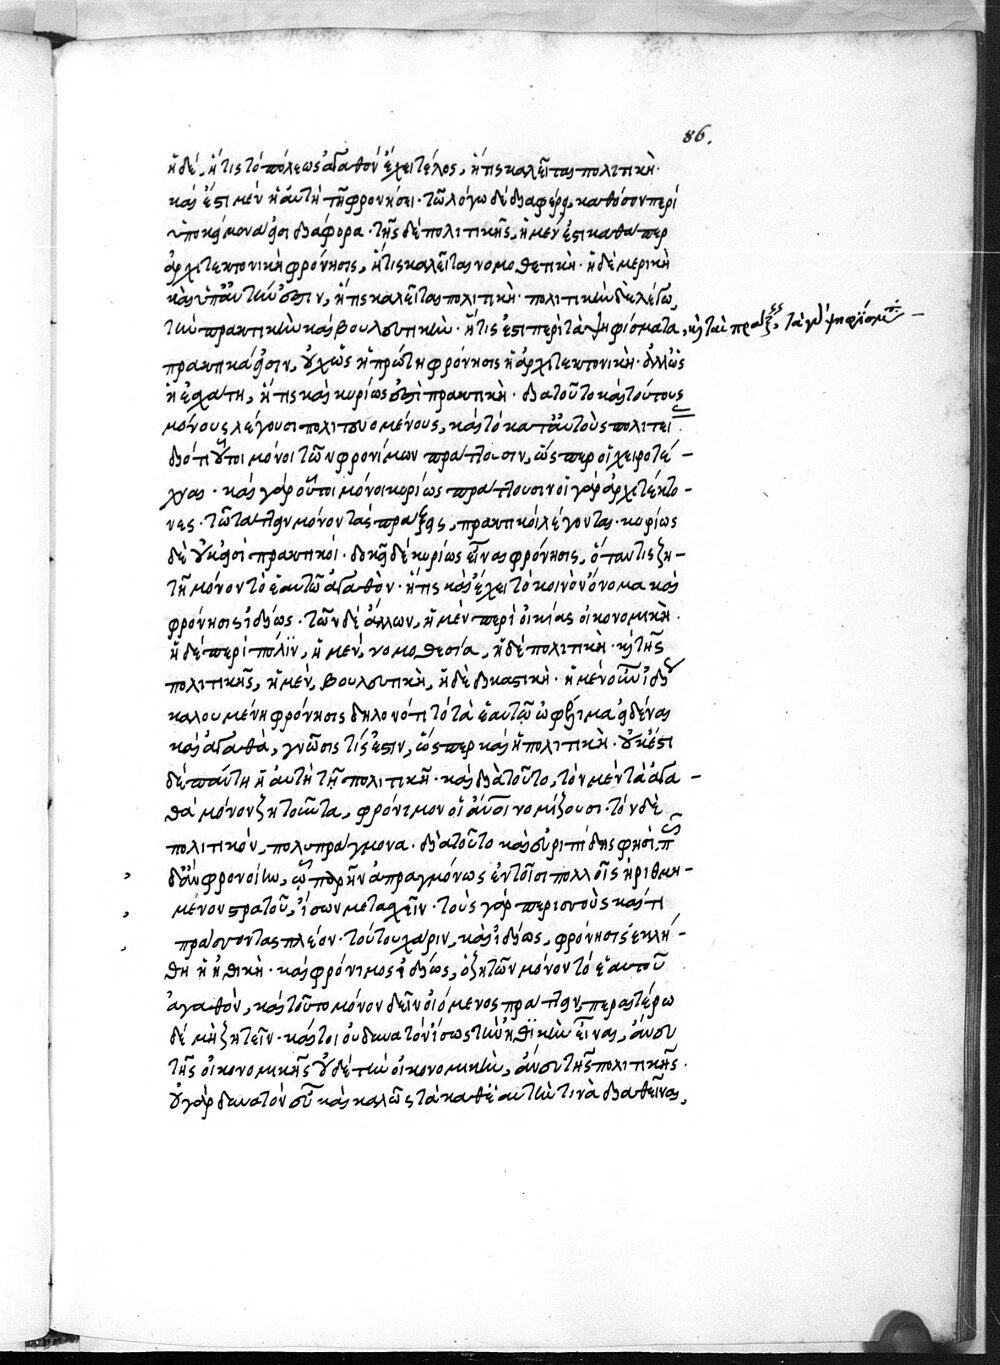 86.
ἡ δέ, ἥτις τὸ πόλεως ἀγαθὸν ἔχει τέλος, ἥτις καλεῖται πολιτικὴ·
καὶ ἔστι μὲν ἡ αὐτὴ τῇ φρονήσει· τῷ λόγῳ δὲ διαφέρει, καθόσον περὶ
ὑποκείμενα εἰσι διάφορα· τῆς δὲ πολιτικῆς, ἡ μέν ἐστι καθάπερ
ἀρχιτεκτονικὴ φρόνησις, ἥτις καλεῖται νομοθετικὴ· ἡ δὲ μερικὴ
καὶ ὑπ' αὐτήν ἐστιν, ἥτις καλεῖται πολιτικὴ· πολιτικὴν δὲ λέγω,
τὴν πρακτικὴν καὶ βουλευτικὴν· ἥτις ἐστὶ περὶ τὰ ψηφίσματα, κỳ τὰς πράξεις, τὰ γὰρ ψηφίσματα
πρακτικά εἰσιν, οὐχ ὡς ἡ πρώτη φρόνησις ἡ ἀρχιτεκτονικὴ· ἀλλ' ὡς
ἡ ἐσχάτη, ἥτις καὶ κυρίως ἐστὶ πρακτικὴ· διὰ τοῦτο καὶ τούτους
μόνους λέγουσι πολιτευομένους, καὶ τὸ κατ' αὐτοὺς πολιτεύ
διότι οὗτοι μόνοι τῶν φρονίμων πράττουσιν, ὥσπερ οἱ χειροτέ-
χναι· καὶ γὰρ οὗτοι μόνοι κυρίως πράττουσιν οἱ γὰρ ἀρχιτέκτο-
νες· τῷ τάττειν μόνον τὰς πράξεις, πρακτικοὶ λέγονται· κυρίως
δὲ οὐκ εἰσὶ πρακτικοί· δοκεῖ δὲ κυρίως εἶναι φρόνησις, ὅταν τις ζη-
τῇ μόνον τὸ ἑαυτῷ ἀγαθὸν· ἥτις καὶ ἔχει τὸ κοινὸν ὄνομα καὶ
φρόνησις ἰδίως· τῶν δὲ ἄλλων, ἡ μὲν περὶ οἰκίας οἰκονομικὴ·
ἡ δὲ περὶ πόλιν, ἡ μὲν, νομοθεσία, ἡ δὲ πολιτικὴ· κỳ τῆς
πολιτικῆς, ἡ μὲν, βουλευτικὴ, ἡ δὲ δικαστικὴ· ἡ μὲν οὖν ἰδίου
καλουμένη φρόνησις δηλονότι τὸ τὰ ἑαυτῷ ὠφέλιμα εἰδέναι
καὶ ἀγαθὰ, γνῶσις τίς ἐστιν, ὥσπερ καὶ ἡ πολιτικὴ· οὐκ ἔστι
δὲ πάντη ἡ αὐτὴ τῇ πολιτικῇ· καὶ διὰ τοῦτο, τὸν μὲν τὰ ἀγα-
θὰ μόνον ζητοῦντα, φρόνιμον οἱ αὐτοὶ νομίζουσι· τὸν δὲ
πολιτικὸν, πολυπράγμονα· διὰ τοῦτο καὶ εὐριπίδης φησὶ, πῶς
δ' ἂν φρονοίην, ᾧ παρῆν ἀπραγμόνως ἐν τοῖσι πολλοῖς ἠριθμη-
μένον στρατοῦ, ἴσων μετασχεῖν· τοὺς γὰρ περισσοὺς καί τι
πράσσοντας πλέον· τούτου χάριν, καὶ ἰδίως, φρόνησις ἐκλή-
θη ἡ ἠθικὴ· καὶ φρόνιμος ἰδίως, ὁ ζητῶν μόνον τὸ ἑαυτοῦ
ἀγαθὸν, καὶ τοῦτο μόνον δεῖν οἰόμενος πράττειν, περαιτέρω
δὲ μὴ ζητεῖν· καίτοι οὐ δυνατὸν ἴσως τὴν ἠθικὴν εἶναι, ἄνευ
τῆς οἰκονομικῆς οὐδὲ τὴν οἰκονομικὴν, ἄνευ τῆς πολιτικῆς·
οὐ γὰρ δυνατὸν εὖ καὶ καλῶς τὰ καθ' ἑαυτὴν τινὰ διαθεῖναι,